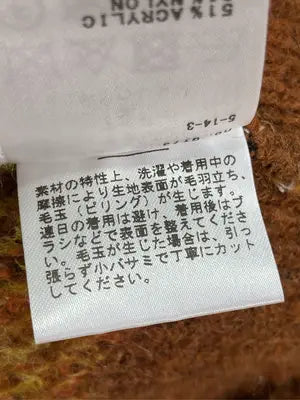 51% ACRYLIC
NYLON
5-14-3
素材の特性上、洗濯や着用中の
摩擦により生地表面が毛羽立ち、
毛玉(ピリング)が生じます。
連日の着用は避け、着用後はブ
ラシなどで表面を整えてくださ
い。毛玉が生じた場合は、引っ
張らず小バサミで丁寧にカット
してください。